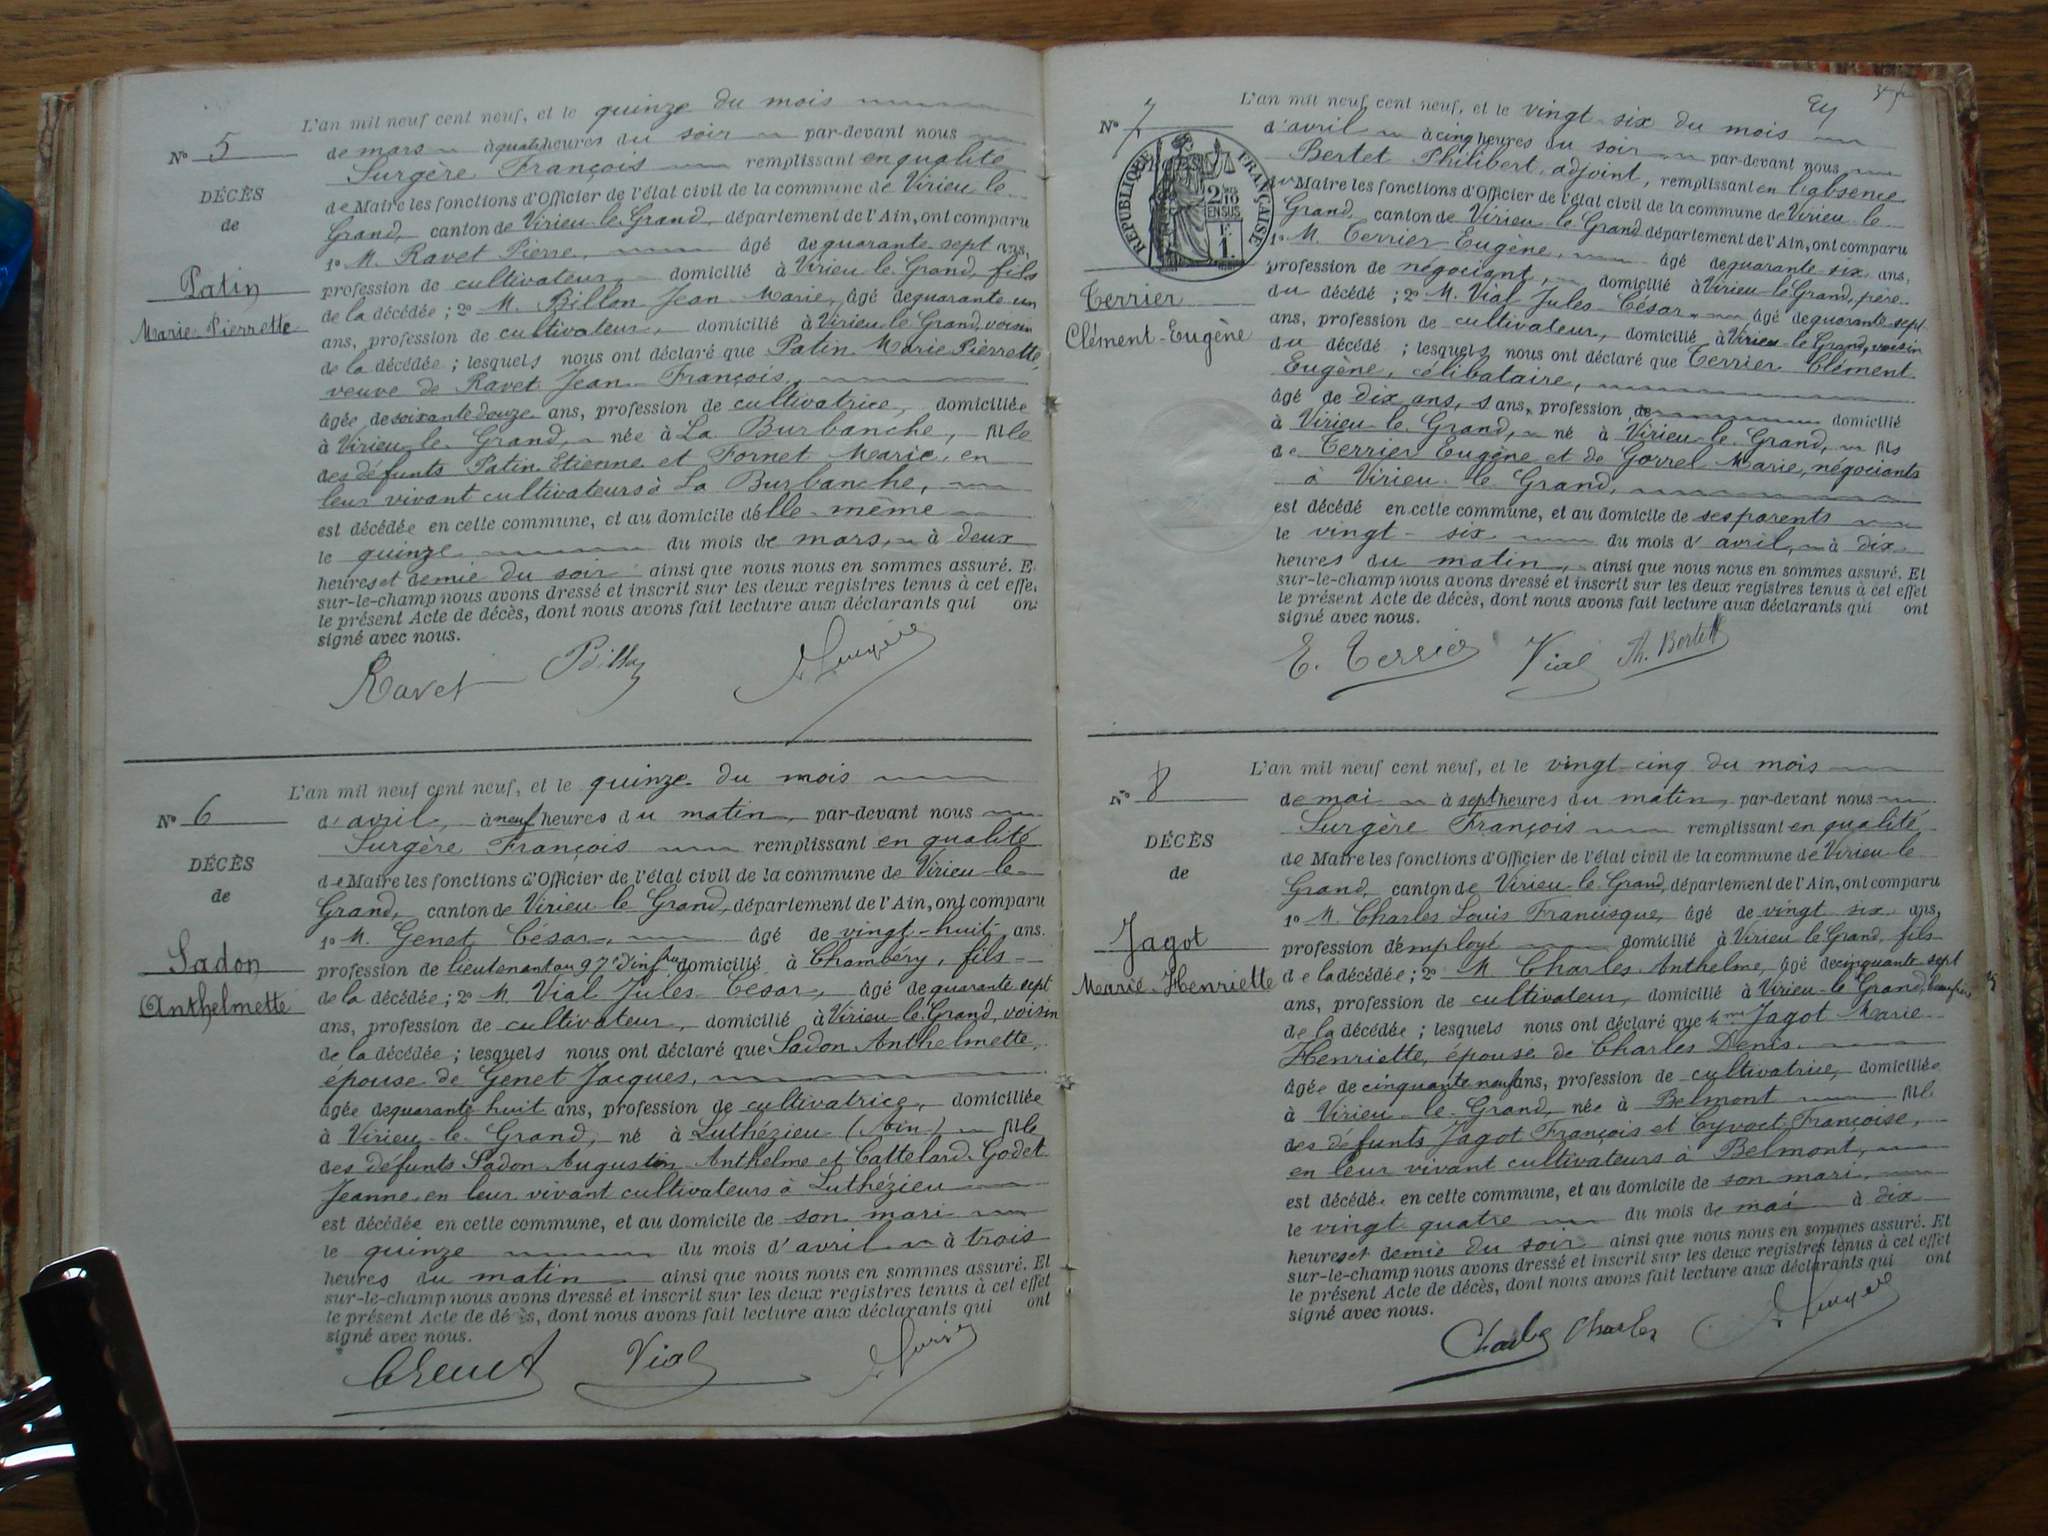 L'an mil neuf cent neuf, et le quinze du mois
N° 5
de mars à quatre heures du soir par-devant nous
Surgère François remplissant en qualité
DÉCÈS
de Maire les fonctions d'Officier de l'état civil de la commune de Virieu le
de
Grand, canton de Virieu-le-Grand, département de l'Ain, ont comparu
1° M. Ravet Pierre, âgé de quarante sept ans,
Patin
profession de cultivateur, domicilié à Virieu le Grand, fils
de la décédée ; 2° M. Billon Jean-Marie, âgé de quarante un
Marie-Pierrette
ans, profession de cultivateur, domicilié à Virieu-le-Grand, voisin
de la décédée ; lesquels nous ont déclaré que Patin Marie Pierrette,
veuve de Ravet Jean-François,
âgée de soixante douze ans, profession de cultivatrice, domiciliée
à Virieu-le-Grand, née à La Burbanche, fille
des défunts Patin Etienne et Fornet Marie, en
leur vivant cultivateurs à La Burbanche,
est décédée en cette commune, et au domicile d'elle-même
le quinze du mois de mars, à deux
heures et demie du soir ainsi que nous nous en sommes assuré. E
sur-le-champ nous avons dressé et inscrit sur les deux registres tenus à cet effe
le présent Acte de décès, dont nous avons fait lecture aux déclarants qui on
signé avec nous.
Ravet Billon Surgère
L'an mil neuf cent neuf, et le quinze du mois
N° 6
d'avril, à neuf heures du matin, par-devant nous
Surgère François remplissant en qualité
DÉCÈS
de Maire les fonctions d'Officier de l'état civil de la commune de Virieu-le-
de
Grand, canton de Virieu-le-Grand, département de l'Ain, ont comparu
1° M. Genet César, âgé de vingt-huit ans.
Sadon
profession de lieutenant au 97e d'infrie domicilié à Chambéry, fils
de la décédée ; 2° M. Vial Jules-César, âgé de quarante sept
Anthelmette
ans, profession de cultivateur, domicilié à Virieu-le-Grand, voisin
de la décédée ; lesquels nous ont déclaré que Sadon Anthelmette,
épouse de Genet Jacques,
âgée de quarante huit ans, profession de cultivatrice, domiciliée
à Virieu-le-Grand, né à Luthézieu (Ain) fille
des défunts Sadon Augustin Anthelme et Cattelard-Godet
Jeanne en leur vivant cultivateurs à Luthézieu
est décédée en cette commune, et au domicile de son mari
le quinze du mois d'avril à trois
heures du matin ainsi que nous nous en sommes assuré. Et
sur-le-champ nous avons dressé et inscrit sur les deux registres tenus à cet effet
le présent Acte de décès, dont nous avons fait lecture aux déclarants qui ont
signé avec nous.
Genet Vial Surgère
L'an mil neuf cent neuf, et le vingt-six du mois
N° 7
d'avril à cinq heures du soir par-devant nous
Bertet Philibert, adjoint, remplissant en l'absence
RÉPUBLIQUE FRANÇAISE
2/10 EN SUS
F. 1
du Maire les fonctions d'Officier de l'état civil de la commune de Virieu-le
Grand canton de Virieu-le-Grand département de l'Ain, ont comparu
1° M. Terrier Eugène, âgé de quarante six ans,
profession de négociant, domicilié à Virieu-le-Grand, père
Terrier
du décédé ; 2° M. Vial Jules-César, âgé de quarante sept
Clément-Eugène
ans, profession de cultivateur, domicilié à Virieu-le-Grand, voisin
du décédé ; lesquels nous ont déclaré que Terrier Clément
Eugène, célibataire,
âgé de dix ans, ans, profession de domicilié
à Virieu-le-Grand, né à Virieu-le-Grand, fils
de Terrier Eugène et de Gorrel Marie, négociants
à Virieu-le-Grand,
est décédé en cette commune, et au domicile de ses parents
le vingt-six du mois d'avril, à dix
heures du matin, ainsi que nous nous en sommes assuré. Et
sur-le-champ nous avons dressé et inscrit sur les deux registres tenus à cet effet
le présent Acte de décès, dont nous avons fait lecture aux déclarants qui ont
signé avec nous.
E. Terrier Vial Ph. Bertet
L'an mil neuf cent neuf, et le vingt-cinq du mois
N° 8
de mai à sept heures du matin, par-devant nous
Surgère François remplissant en qualité
DÉCÈS
de Maire les fonctions d'Officier de l'état civil de la commune de Virieu-le
de
Grand, canton de Virieu-le-Grand, département de l'Ain, ont comparu
1° M. Charles Louis Francisque, âgé de vingt six ans,
Jagot
profession d'employé domicilié à Virieu le Grand, fils
de la décédée ; 2° M. Charles Anthelme, âgé de cinquante sept
Marie-Henriette
ans, profession de cultivateur, domicilié à Virieu-le-Grand, beau frère
de la décédée ; lesquels nous ont déclaré que Jagot Marie
Henriette, épouse de Charles Denis.
âgée de cinquante neuf ans, profession de cultivatrice, domiciliée
à Virieu-le-Grand, née à Belmont fille
des défunts Jagot François et Cyvoct Françoise,
en leur vivant cultivateurs à Belmont,
est décédée en cette commune, et au domicile de son mari,
le vingt quatre du mois de mai à dix
heures et demie du soir ainsi que nous nous en sommes assuré. Et
sur-le-champ nous avons dressé et inscrit sur les deux registres tenus à cet effet
le présent Acte de décès, dont nous avons fait lecture aux déclarants qui ont
signé avec nous.
Charles Charles Surgère